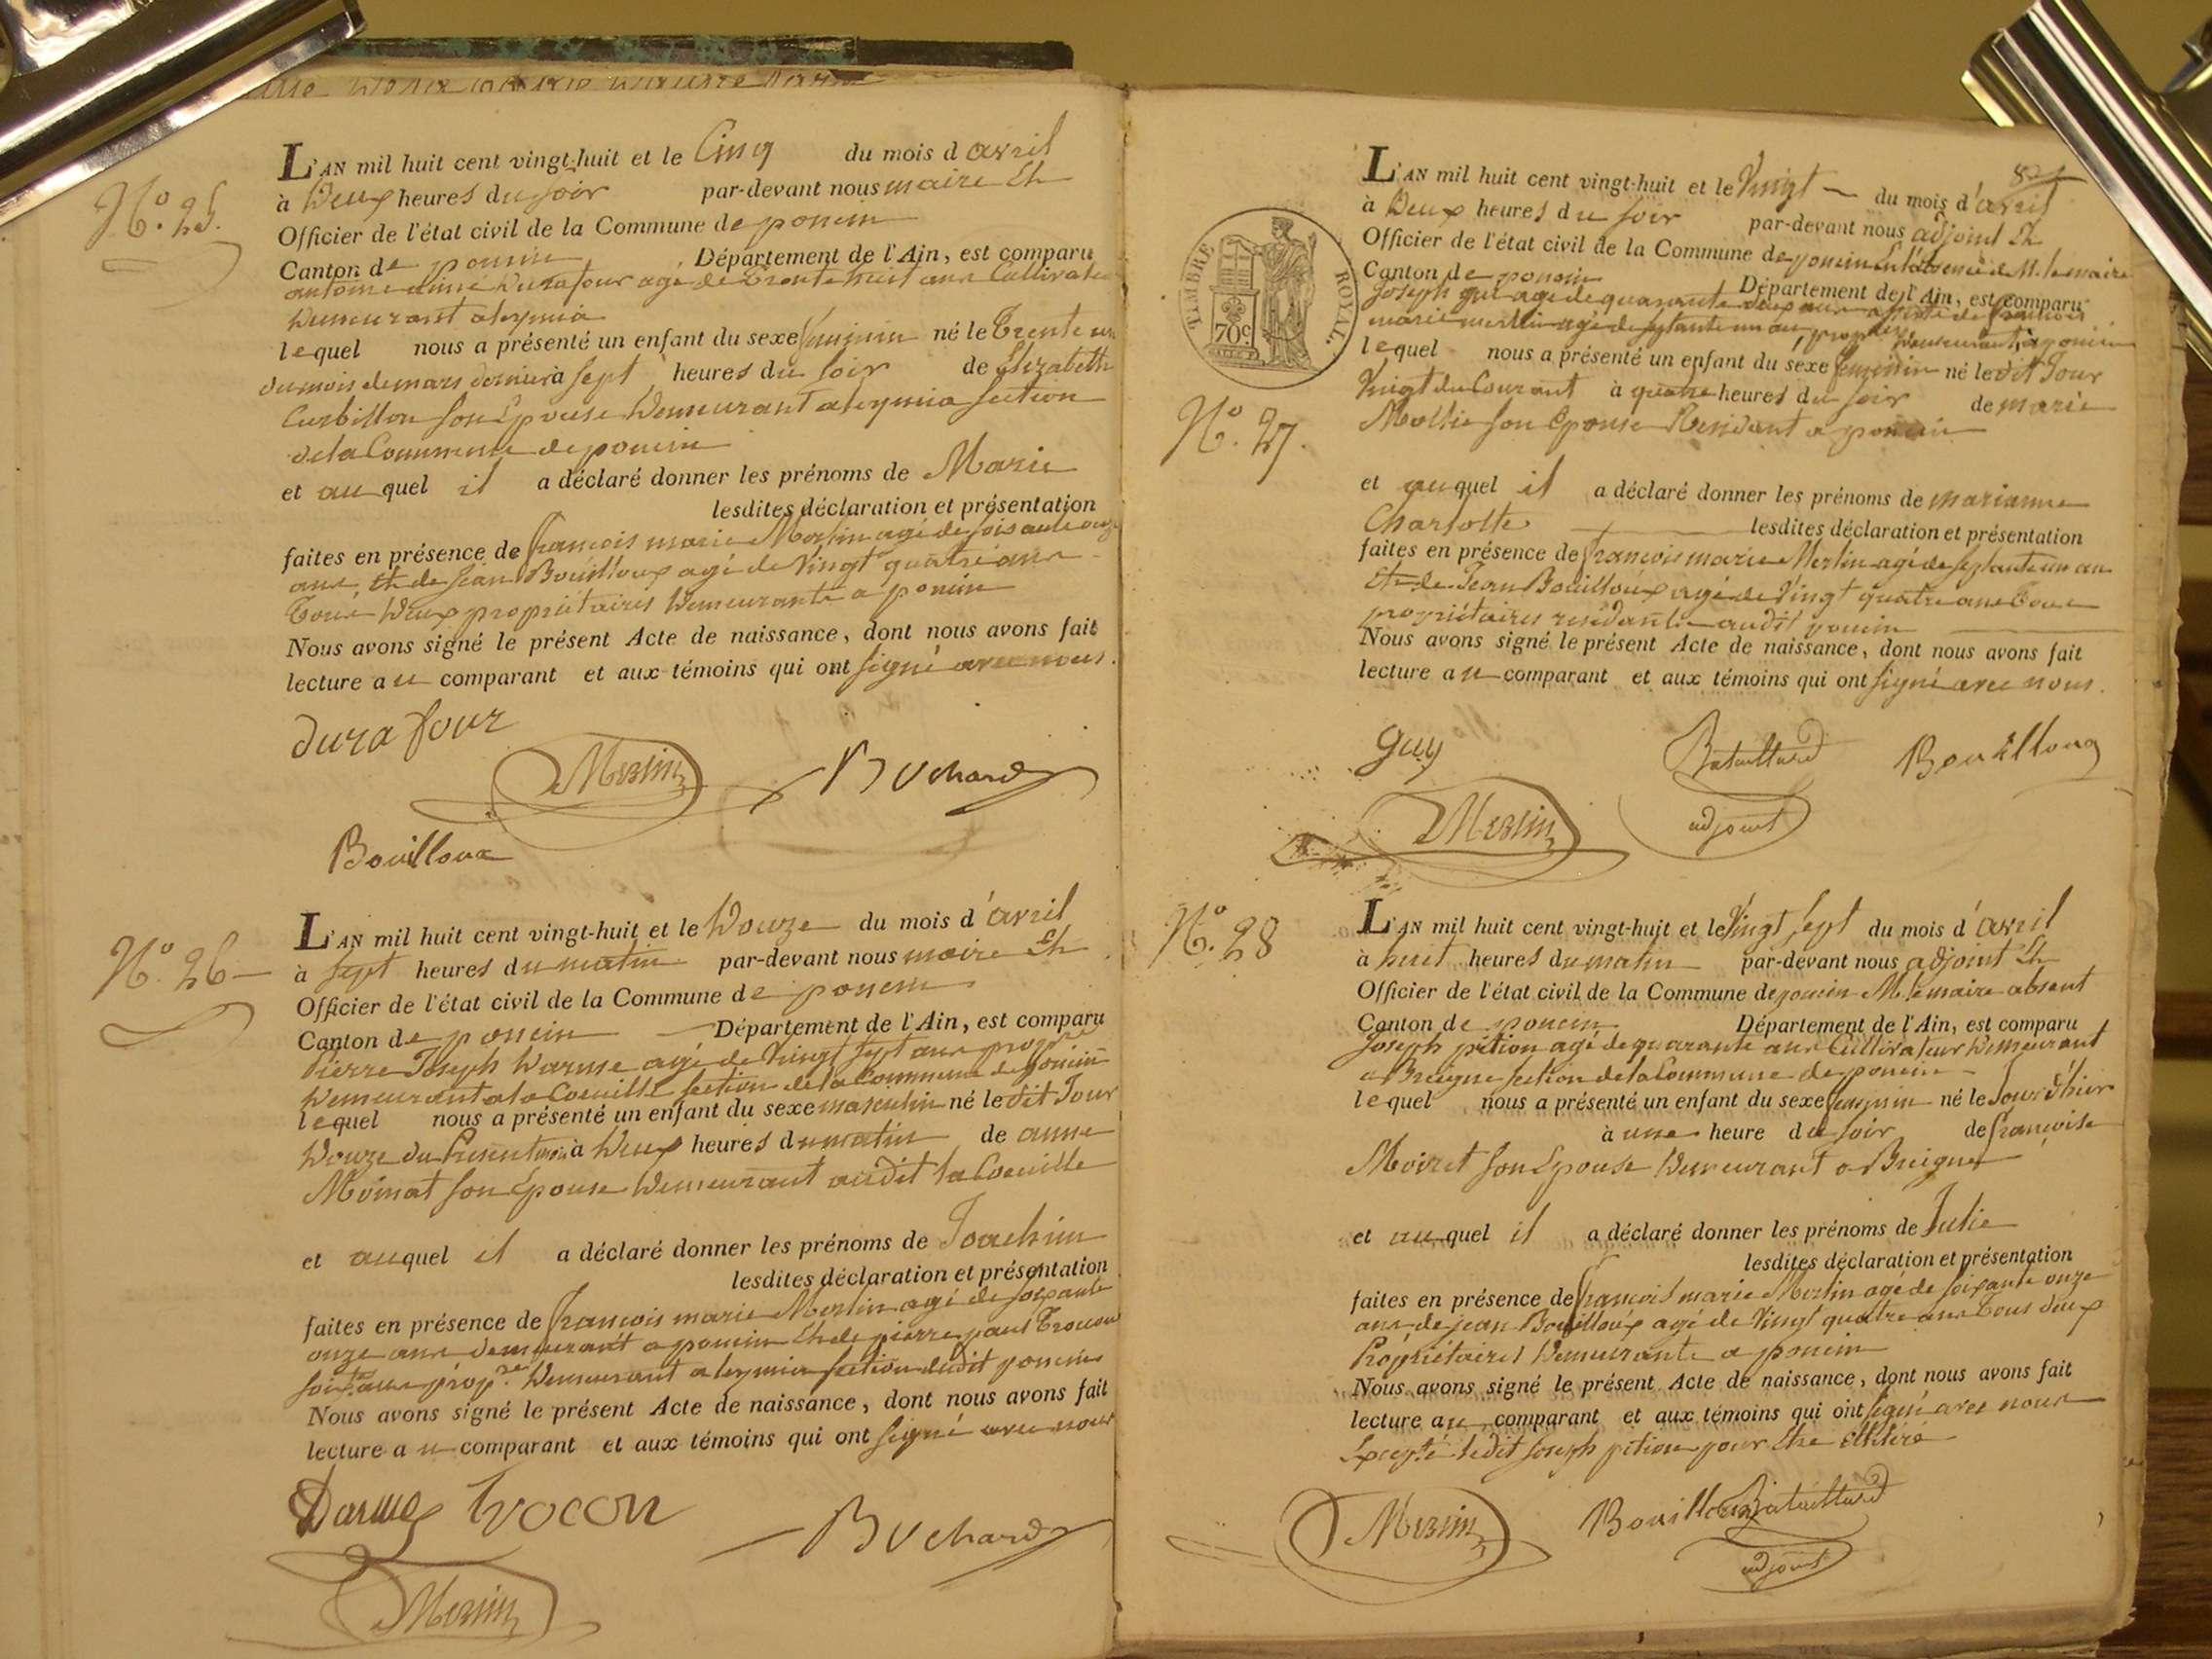 N.° 25.
L'AN mil huit cent vingt-huit et le Cinq du mois d avril
à Deux heures du soir par-devant nous maire Et
Officier de l'état civil de la Commune de poncin
Canton de poncin Département de l'Ain, est comparu
antoine aimé Durafour agé de Trente huit ans Cultivateur
Demeurant a leymia
lequel nous a présenté un enfant du sexe feminin né le Trente un
du mois de mars dernier à sept heures du soir de Elizabeth
Curbillon son Epouse Demeurant a leymia section
de la Commune de poncin
et au quel il a déclaré donner les prénoms de Marie
lesdites déclaration et présentation
faites en présence de françois marie Merlin agé de soixante onze
ans, Et de Jean Bouilloux agé de Vingt quatre ans
Tous Deux propriétaires Demeurants a poncin
Nous avons signé le présent Acte de naissance, dont nous avons fait
lecture au comparant et aux témoins qui ont signé avec nous.
durafour
Merlin
Bochard
Bouilloux
N.° 26
L'AN mil huit cent vingt-huit et le Douze du mois d'avril
à sept heures du matin par-devant nous maire Et
Officier de l'état civil de la Commune de poncin
Canton de poncin Département de l'Ain, est comparu
Pierre Joseph Darme agé de Vingt sept ans prop.re
Demeurant a la Coeuille section de la Commune de poncin
lequel nous a présenté un enfant du sexe masculin né le dit Jour
Douze du Present mois à Deux heures du matin de anne
Moinat son Epouse Demeurant audit la Coeuille
et au quel il a déclaré donner les prénoms de Joachim
lesdites déclaration et présentation
faites en présence de françois marie Merlin agé de soixante
onze ans demeurant a poncin Et de pierre paul Trocon
ans prop.re Demeurant a leymia section dudit poncin
Nous avons signé le présent Acte de naissance, dont nous avons fait
lecture au comparant et aux témoins qui ont signé avec nous
Darme trocon
Bochard
Merlin
TIMBRE ROYAL.
70c
N.° 27.
L'AN mil huit cent vingt-huit et le Vingt du mois d'avril
à Deux heures du soir par-devant nous adjoint Et
Officier de l'état civil de la Commune de poncin En l'absence de M. le maire
Canton de poncin Département de l'Ain, est comparu
Joseph gui agé de quarante deux ans assisté de françois
marie merlin agé de septante un ans, prop.res Demeurant a poncin
lequel nous a présenté un enfant du sexe feminin né le dit Jour
Vingt du Courant à quatre heures du soir de marie
Mollie son Epouse Residant a poncin
et au quel il a déclaré donner les prénoms de marianne
Charlotte lesdites déclaration et présentation
faites en présence de françois marie Merlin agé de septante un an
Et de Jean Bouilloux agé de Vingt quatre ans Tous
propriétaires residants audit poncin
Nous avons signé le présent Acte de naissance, dont nous avons fait
lecture au comparant et aux témoins qui ont signé avec nous.
guy
Bataillard
adjoint
Bouilloux
Merlin
N.° 28
L'AN mil huit cent vingt-huit et le Vingt sept du mois d'avril
à huit heures du matin par-devant nous adjoint Et
Officier de l'état civil de la Commune de poncin M. le maire absent
Canton de poncin Département de l'Ain, est comparu
Joseph pition agé de quarante ans Cultivateur Demeurant
a Breigne section de la Commune de poncin
lequel nous a présenté un enfant du sexe feminin né le Jour d'hier
à une heure du soir de françoise
Moiret son Epouse Demeurant a Breigne
et au quel il a déclaré donner les prénoms de Julie
lesdites déclaration et présentation
faites en présence de françois marie Merlin agé de soixante onze
ans de jean Bouilloux agé de Vingt quatre ans Tous deux
Propriétaires Demeurants a poncin
Nous avons signé le présent Acte de naissance, dont nous avons fait
lecture au comparant et aux témoins qui ont signé avec nous
Excepté ledit Joseph pition pour Etre illitéré
Merlin
Bouilloux
Bataillard
adjoint